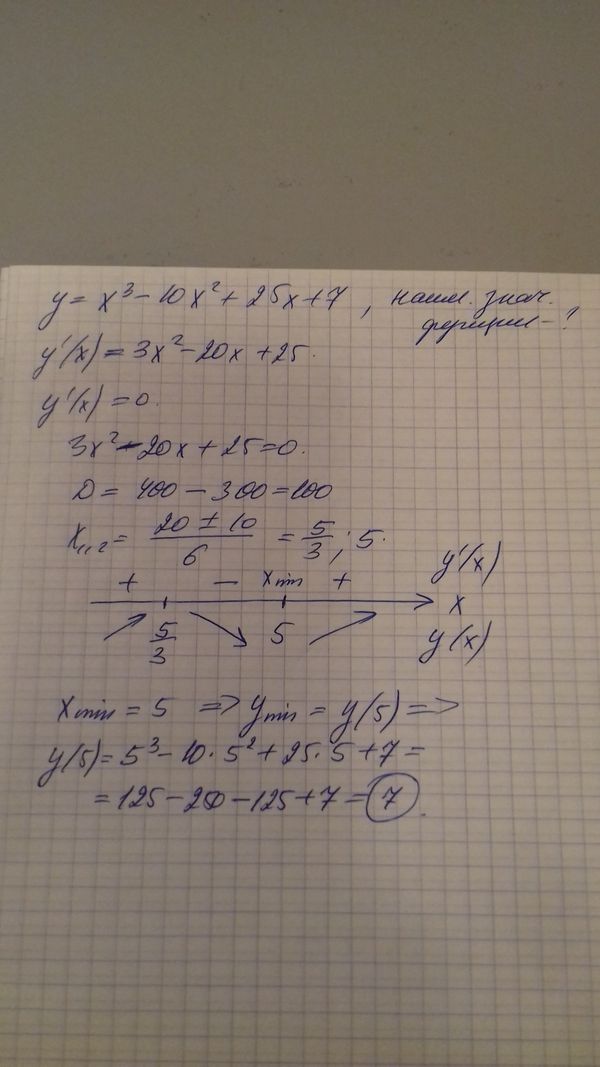 y = x³ - 10x² + 25x + 7, наим. знач.
функции - ?
y'(x) = 3x² - 20x + 25.
y'(x) = 0.
3x² - 20x + 25 = 0.
D = 400 - 300 = 100
x₁,₂ = (20 ± 10)/6 = 5/3; 5.
y'(x)
+ - xmin +
x
5/3 5
y(x)
xmin = 5 => ymin = y(5) =>
y(5) = 5³ - 10·5² + 25·5 + 7 =
= 125 - 20 - 125 + 7 = 7.